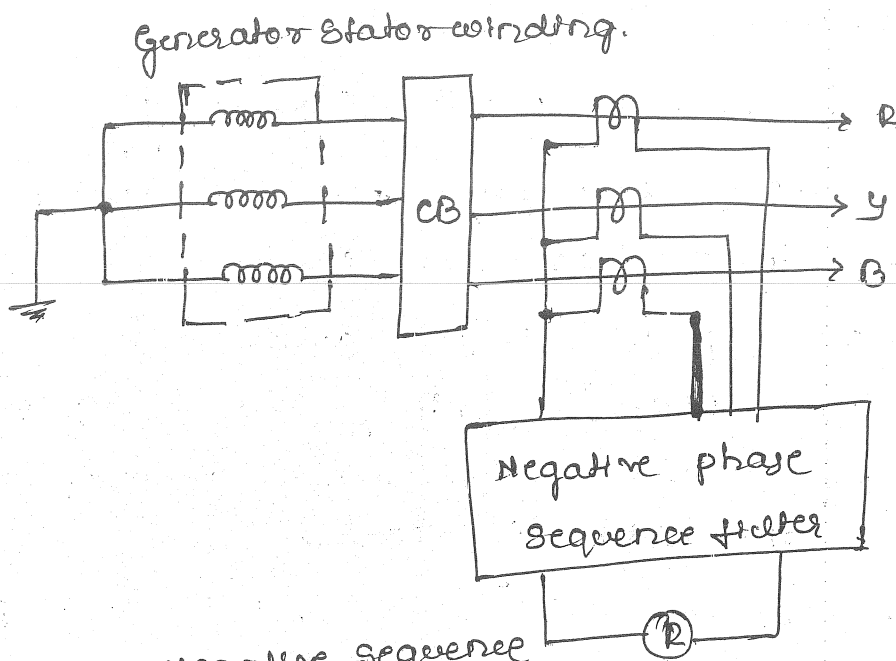 Generator Stator winding.
R
CB
Y
B
Negative phase
sequence filter
R
Negative sequence